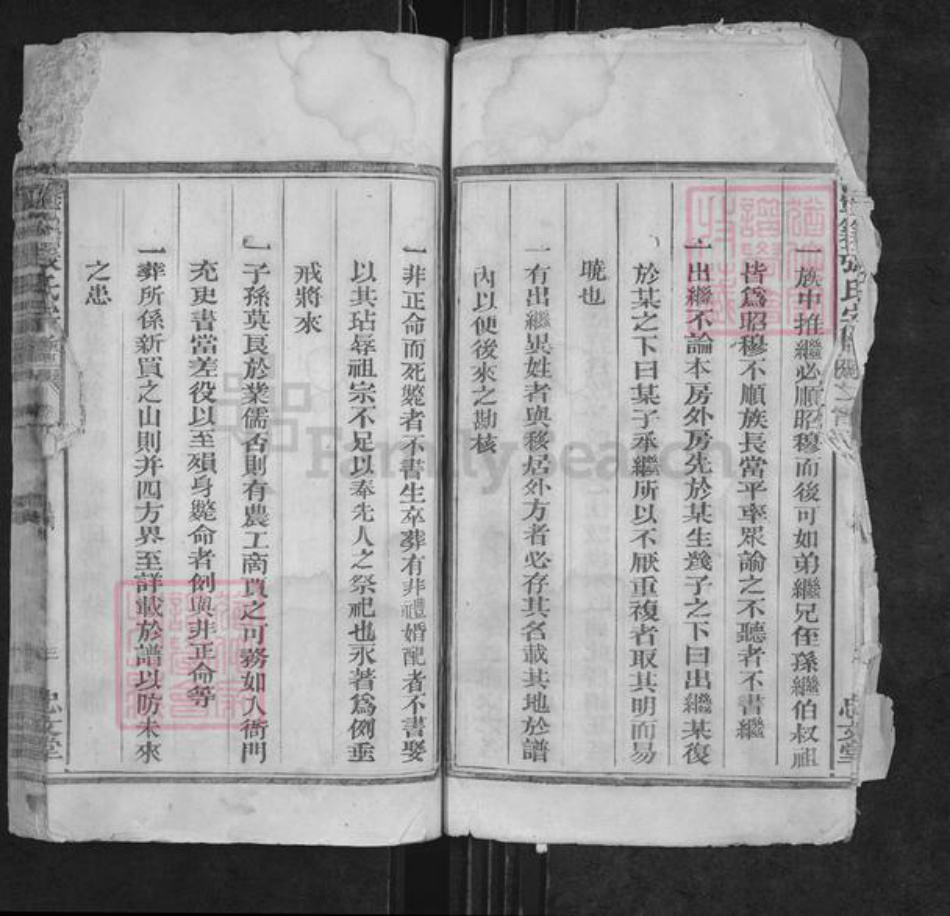 一族中推繼必順昭穆而後可如弟繼兄侄孫繼伯叔祖
皆爲昭穆不順族長當平率眾諭之不聽者不書繼
一出繼不論本房外房先於某生幾子之下曰出繼某復
於某之下曰某子承繼所以不厭重複者取其明而易
曉也
一有出繼異姓者與移居外方者必存其名載其地於譜
內以便後來之勘核
一非正命而死斃者不書生卒葬有非禮婚配者不書娶
以其玷辱祖宗不足以奉先人之祭祀也永著爲例垂
戒將來
一子孫莫良於業儒否則有農工商賈之可務如入衙門
充吏書當差役以至殞身斃命者例與非正命等
一葬所係新買之山則并四方界至詳載於譜以防未來
之患
忠文堂
忠文堂
FamilySearch